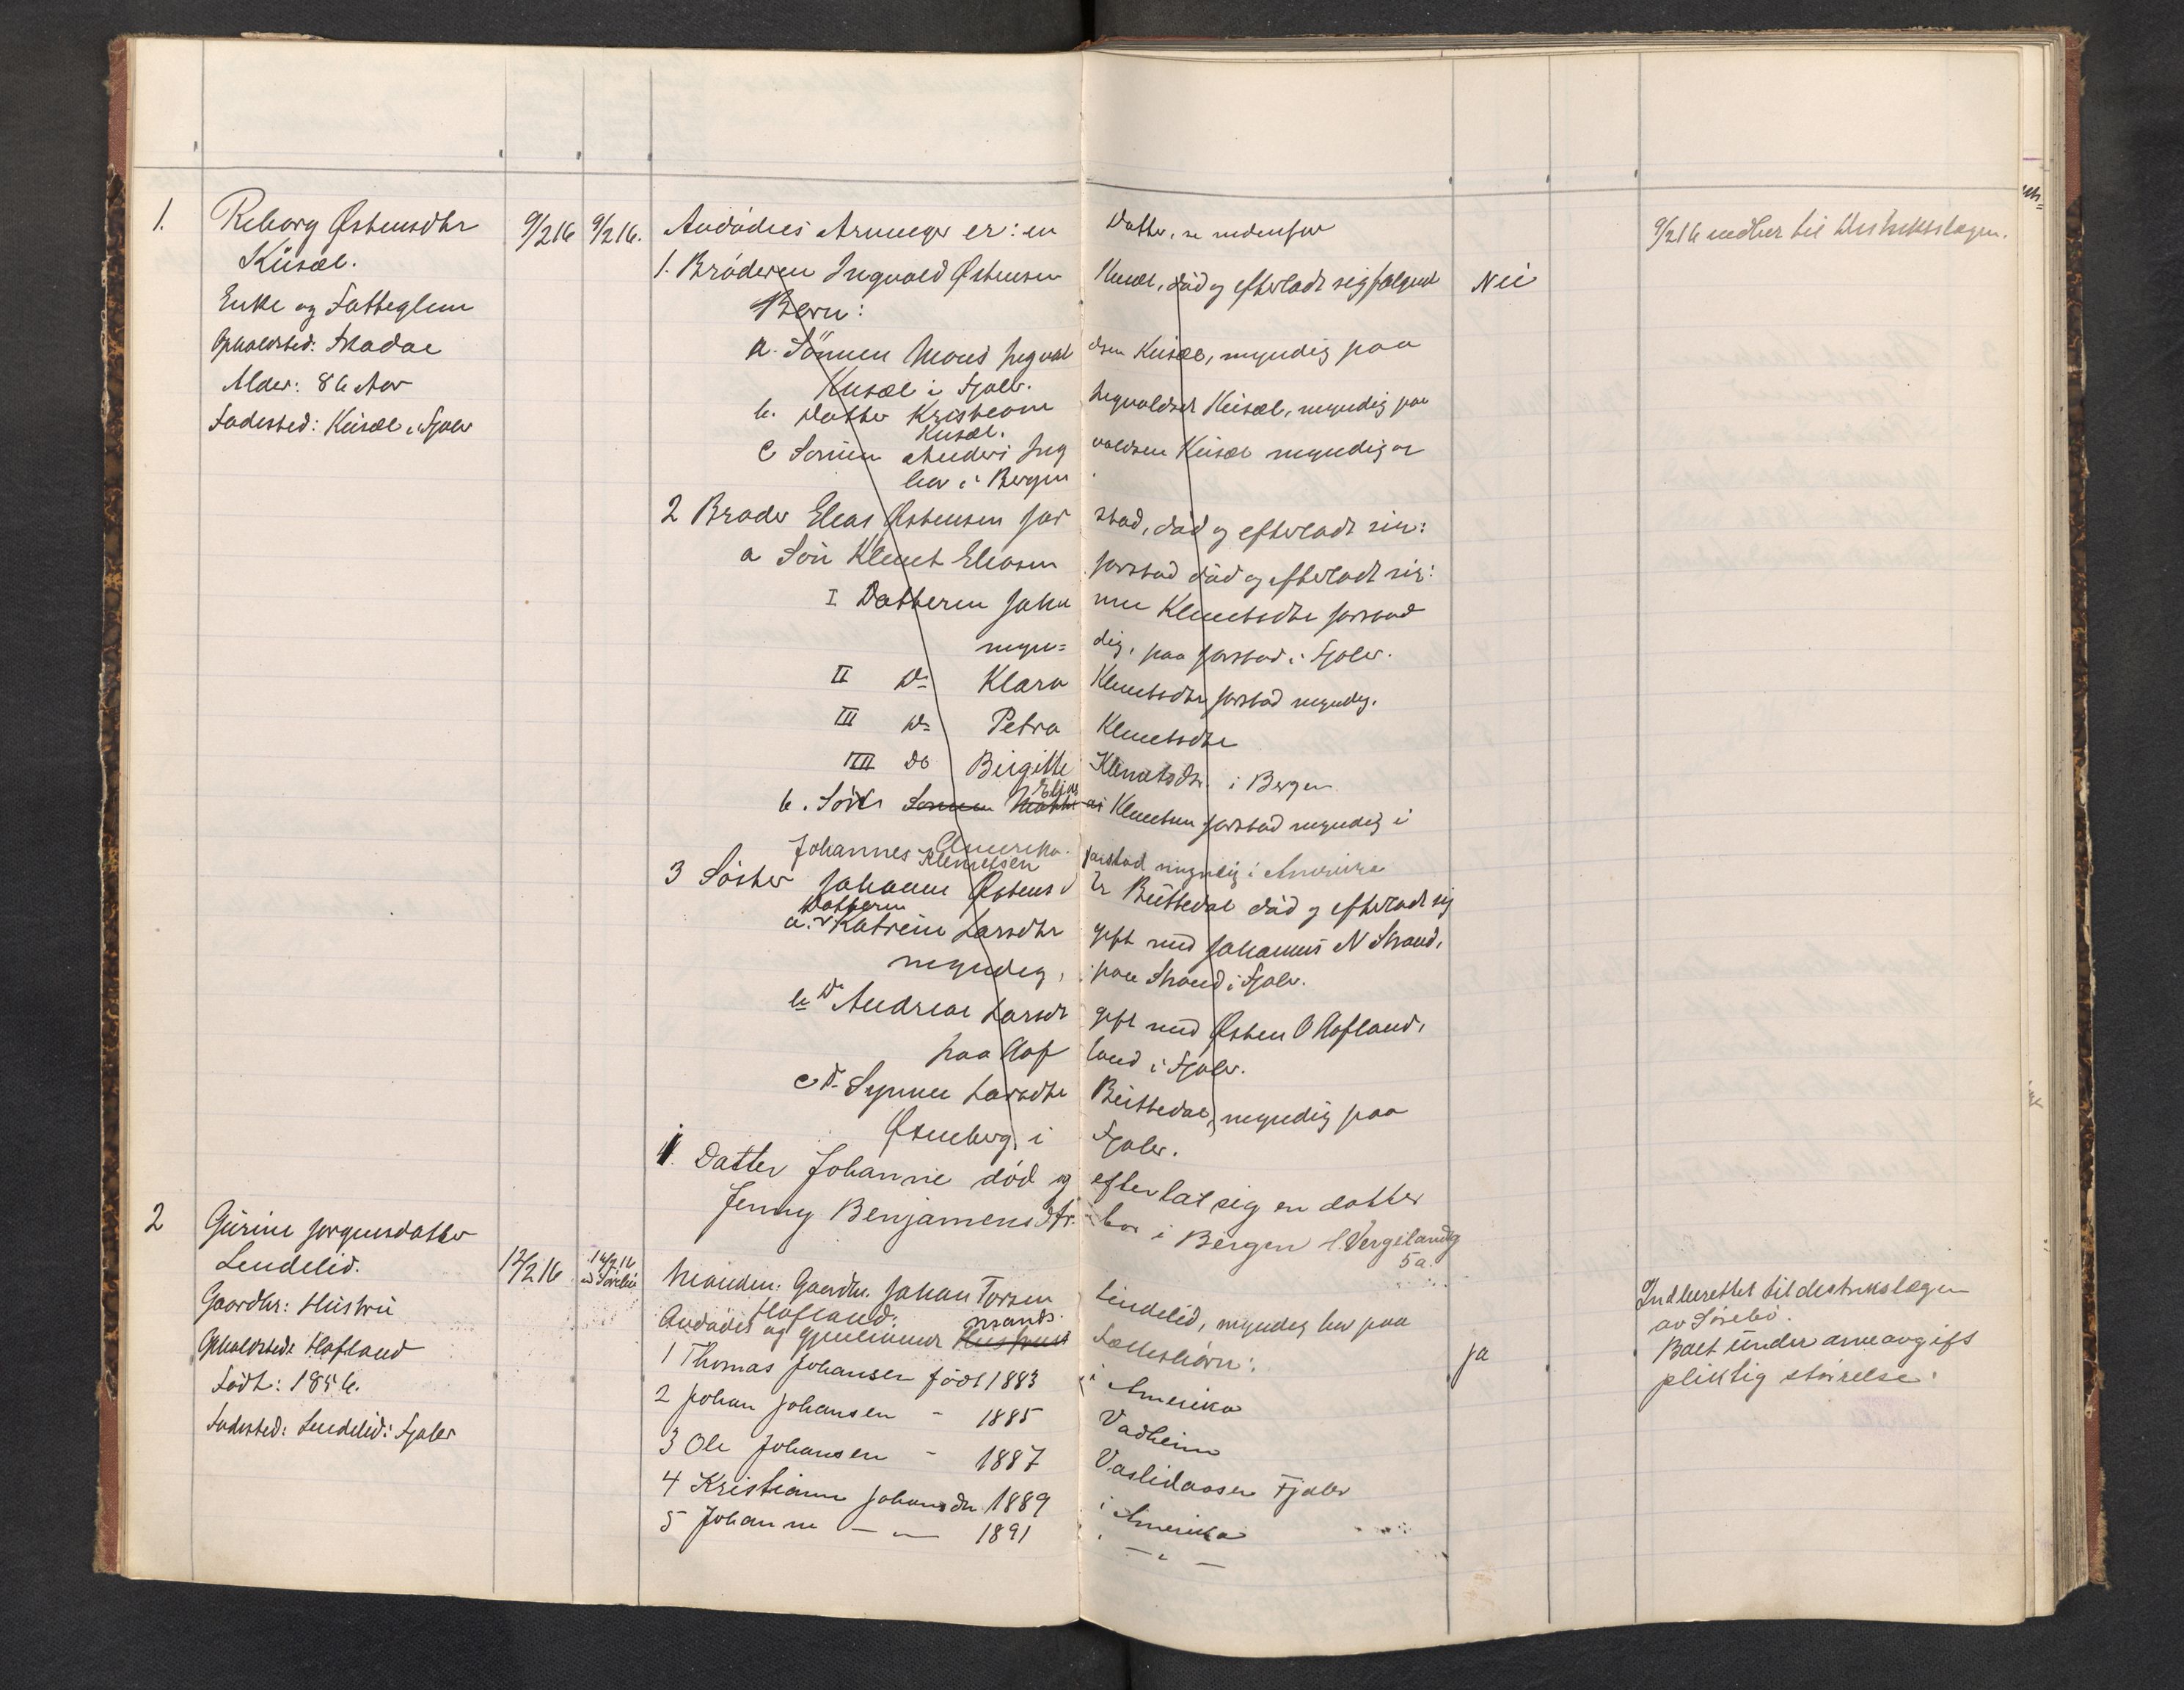 1.
Reborg Østensdtr
Küsæl.
Enke og Fatteglem
Opholdsted: Skadae
Alder: 86 Aar
Fødested: Küsæl i Fjaler
9/2 16
9/2 16.
Avdødes Arvinger er: en Datter, se nedenfor
1. Broderen Ingvald Østensen Küsæl, død og efterladt sig følgende
Børn:
a. Sønnen Mons Ingvaldsen Küsæl, myndig paa
Küsæl i Fjaler.
b. Datter Kristiane Ingvaldsdtr Küsæl, myndig paa
Küsæl.
c Sønnen Anders Ingvaldsen Küsæl myndig og
bor i Bergen
2 Broder Elias Østensen Jarstad, død og efterladt sin:
a Søn Klemet Eliasen Jarstad død og efterladt sig:
I Datteren Johanne Klemetsdtr Jarstad
myndig, paa Jarstad i Fjaler.
II Do Klara Klemetsdtr Jarstad myndig.
III Do Petra Klemetsdtr
IIII Do Birgitte Klemetsdtr. i Bergen
b. Søn Sønnen Mathias Elias Klemetsen Jarstad myndig i
Amerika.
Johannes Klemetsen Jarstad myndig i Amerika
3 Søster Johanne Østensdtr Büttedal død og efterladt sig
a. Datteren Katrine Larsdtr gift med Johannes N Strand,
myndig, paa Strand i Fjaler.
b Do Andrea Larsdtr gift med Østen O Hofland,
paa Hofland i Fjaler.
c Do Synneve Larsdtr Büttedal, myndig paa
Østenberg i Fjaler.
1. Datter Johanne død og efterlat sig en datter
Jenny Benjamensdtr. bor i Bergen H. Vergelandsg
5a.
Nei
9/2 16 medlur til Distriktslægen.
2
Gürine Jørgensdatter
Lendelid.
Gaardbr: Hüstrü
Opholdsted: Hofland
Født: 1856.
Fødested: Lendelid i Fjaler
12/2 16
16/2 16
ved Sørebø
Manden: Gaardbr. Johan Torsen Lindelid, myndig bor paa
Hofland.
Avdødes og gjenlevende Hustrues mands Fællesbørn:
1 Thomas Johansen født 1883 i Amerika
2 Johan Johansen - 1885 Vadheim
3 Ole Johansen - 1887 Vaslidaasen Fjaler
4 Kristiane Johansdtr 1889 i Amerika
5 Johanne — " — 1891 — " —
ja
Indberettet til destriktslægen
av Sørebø.
Boet ünder arveavgifts
pliktig størrelse.